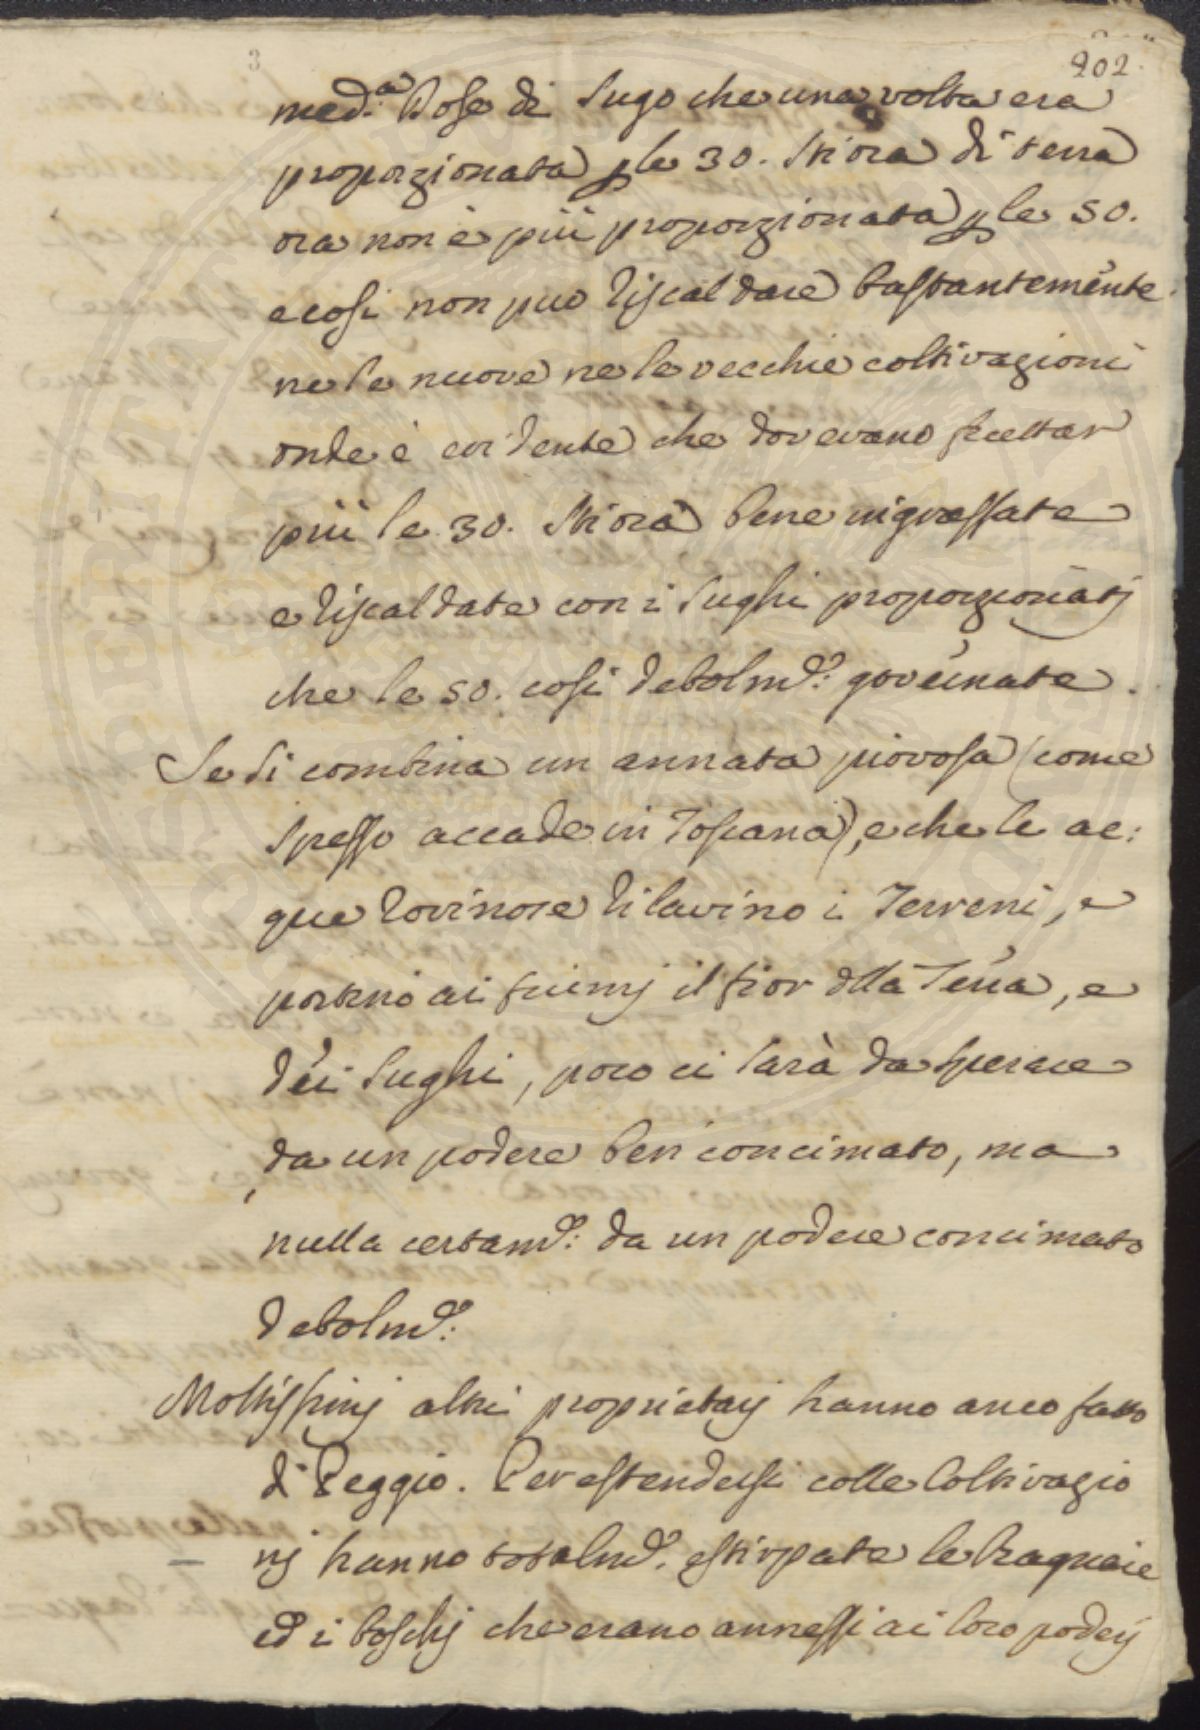 3
202.
med.ª Dose di Sugo che una volta era
proporzionata p le 30. Stiora di terra
ora non è più proporzionata p le 50.
e cosi non può riscaldare bastantemente
ne le nuove ne le vecchie coltivazioni
onde è evidente che dovevano fruttar
più le 30. Stiora bene ingrassate
e riscaldate con i Sughi proporzionatj
che le 50. cosi debolm.e: governate.
Se si combina un annata piovosa (come
spesso accade in Toscana), e che le ac:
que rovinose dilavino i Terreni, e
portino ai fiumj il fior dlla Terra, e
dei Sughi, poco ci sarà da sperare
da un podere ben concimato, ma
nulla certam.e: da un podere concimato
debolm.e:
Moltissimj altri proprietarj hanno anco fatto
di Peggio. Per estendersi colle Coltivazio
nj hanno totalm.e. estirpate le Ragnaie
ed i boschj che erano annessi ai loro poderj